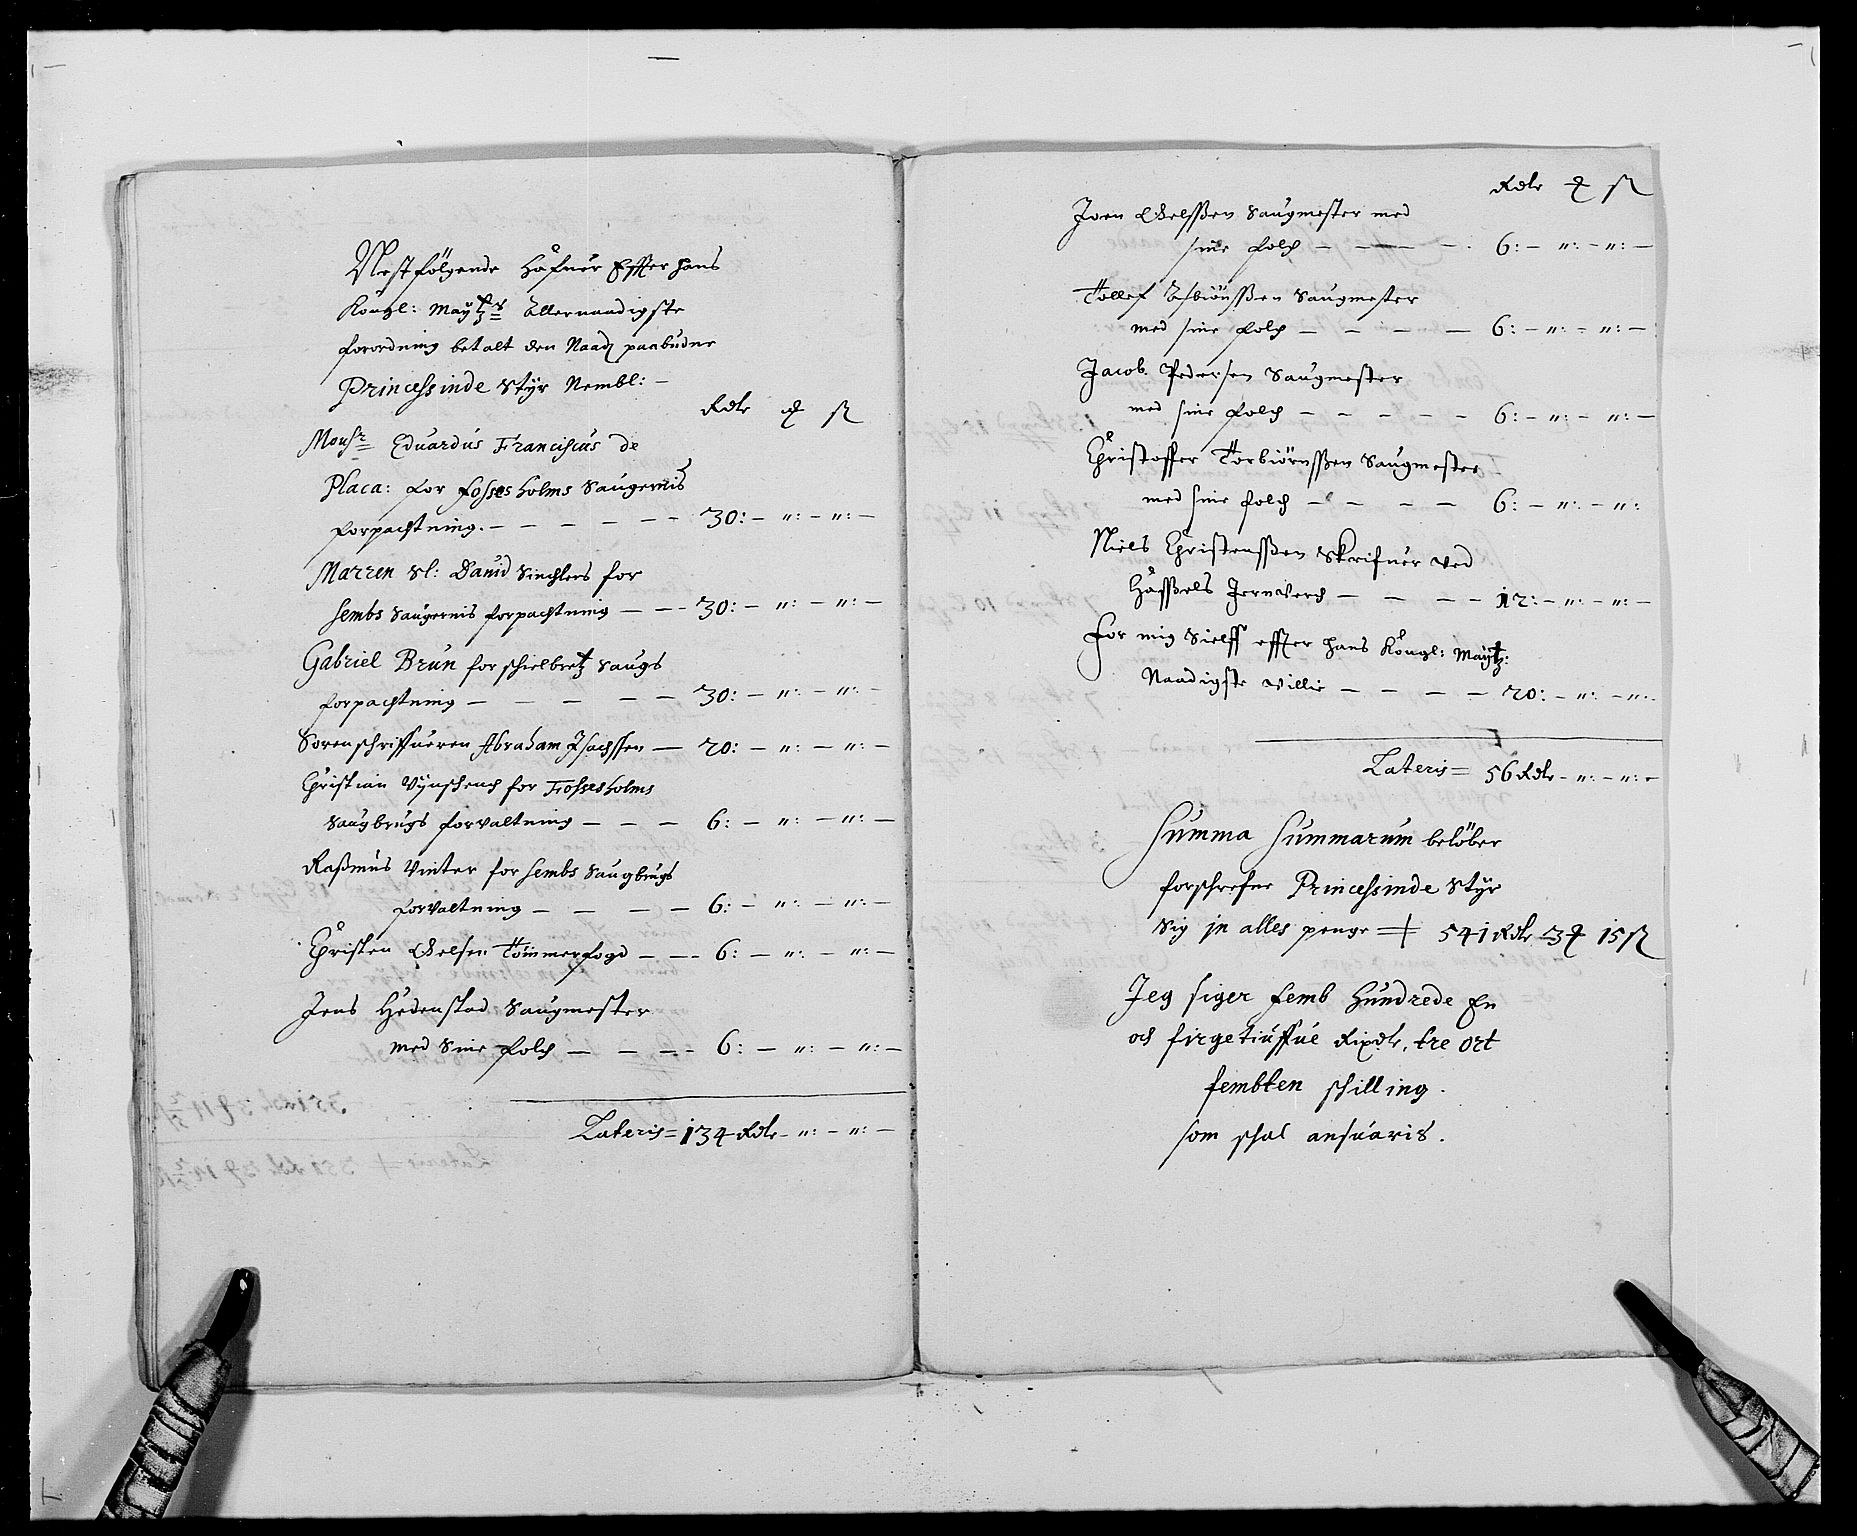 Nestfölgende Hafuer Effter hans
Kongl: Mayttz Allernaadigste
forordning betalt den Naad: paabudne
Princessinde Styr Nembl: -
Rdr ꝗ ß
Monsr Eduardus Franciscus de
Placa: for Fossesholms Saugernis
forpachtning. - - - - - - 30: - ": - ": -
Marren Sl: Dauid Sinchlers for
Sembs Saugernis forpachtning - - - 30: - ": - ": -
Gabriel Brun for schielbretz Saugs
forpachtning - - - - - 30: - ": - ": -
Sorenschriffueren Abraham Isachssen - 20: - ": - ": -
Christian for Fossesholms
Saugbrugs forvaltning - - - 6: - ": - ": -
Rassmus Vinter for Sembs Saugbrugs
forvaltning - - - - 6: - ": - ": -
Christen Oelsen Tömmerfogd - - - 6: - ": - ": -
Jens Hedenstad Saugmester
med Sine folch - - - - 6: - ": - ": -
Lateris = 134 Rdr - ": - ": -
Rdr ꝗ ß
Joen Oelssen Saugmester med
sine folch - - - - 6: - ": - ": -
Tollef Asbiönssen Saugmester
med sine folch - - - - 6: - ": - ": -
Jacob Pedersen Saugmester
med sine folch - - - - - 6: - ": - ": -
Christoffer Torbiörnssen Saugmester
med sine folch - - - - 6: - ": - ":
Niels Christenssen Skrifuer ved
Hassels Jernverch - - - - 12: - ": - ": -
For mig Sielff effter hans Kongl: Mayttz:
Naadigste Villie - - - - 20: - ": - ": -
Lateris = 56 Rdr - ": - ": -
Summa Summarum belöber
forschrefne Princessinde Styr
Sig in alles penge = 541 Rdr 3 ꝗ 15 ß
Jeg siger femb Hundrede En
och firgetiuffue Rixdr, tre ort
fembten schilling.
som schal ansuaris.